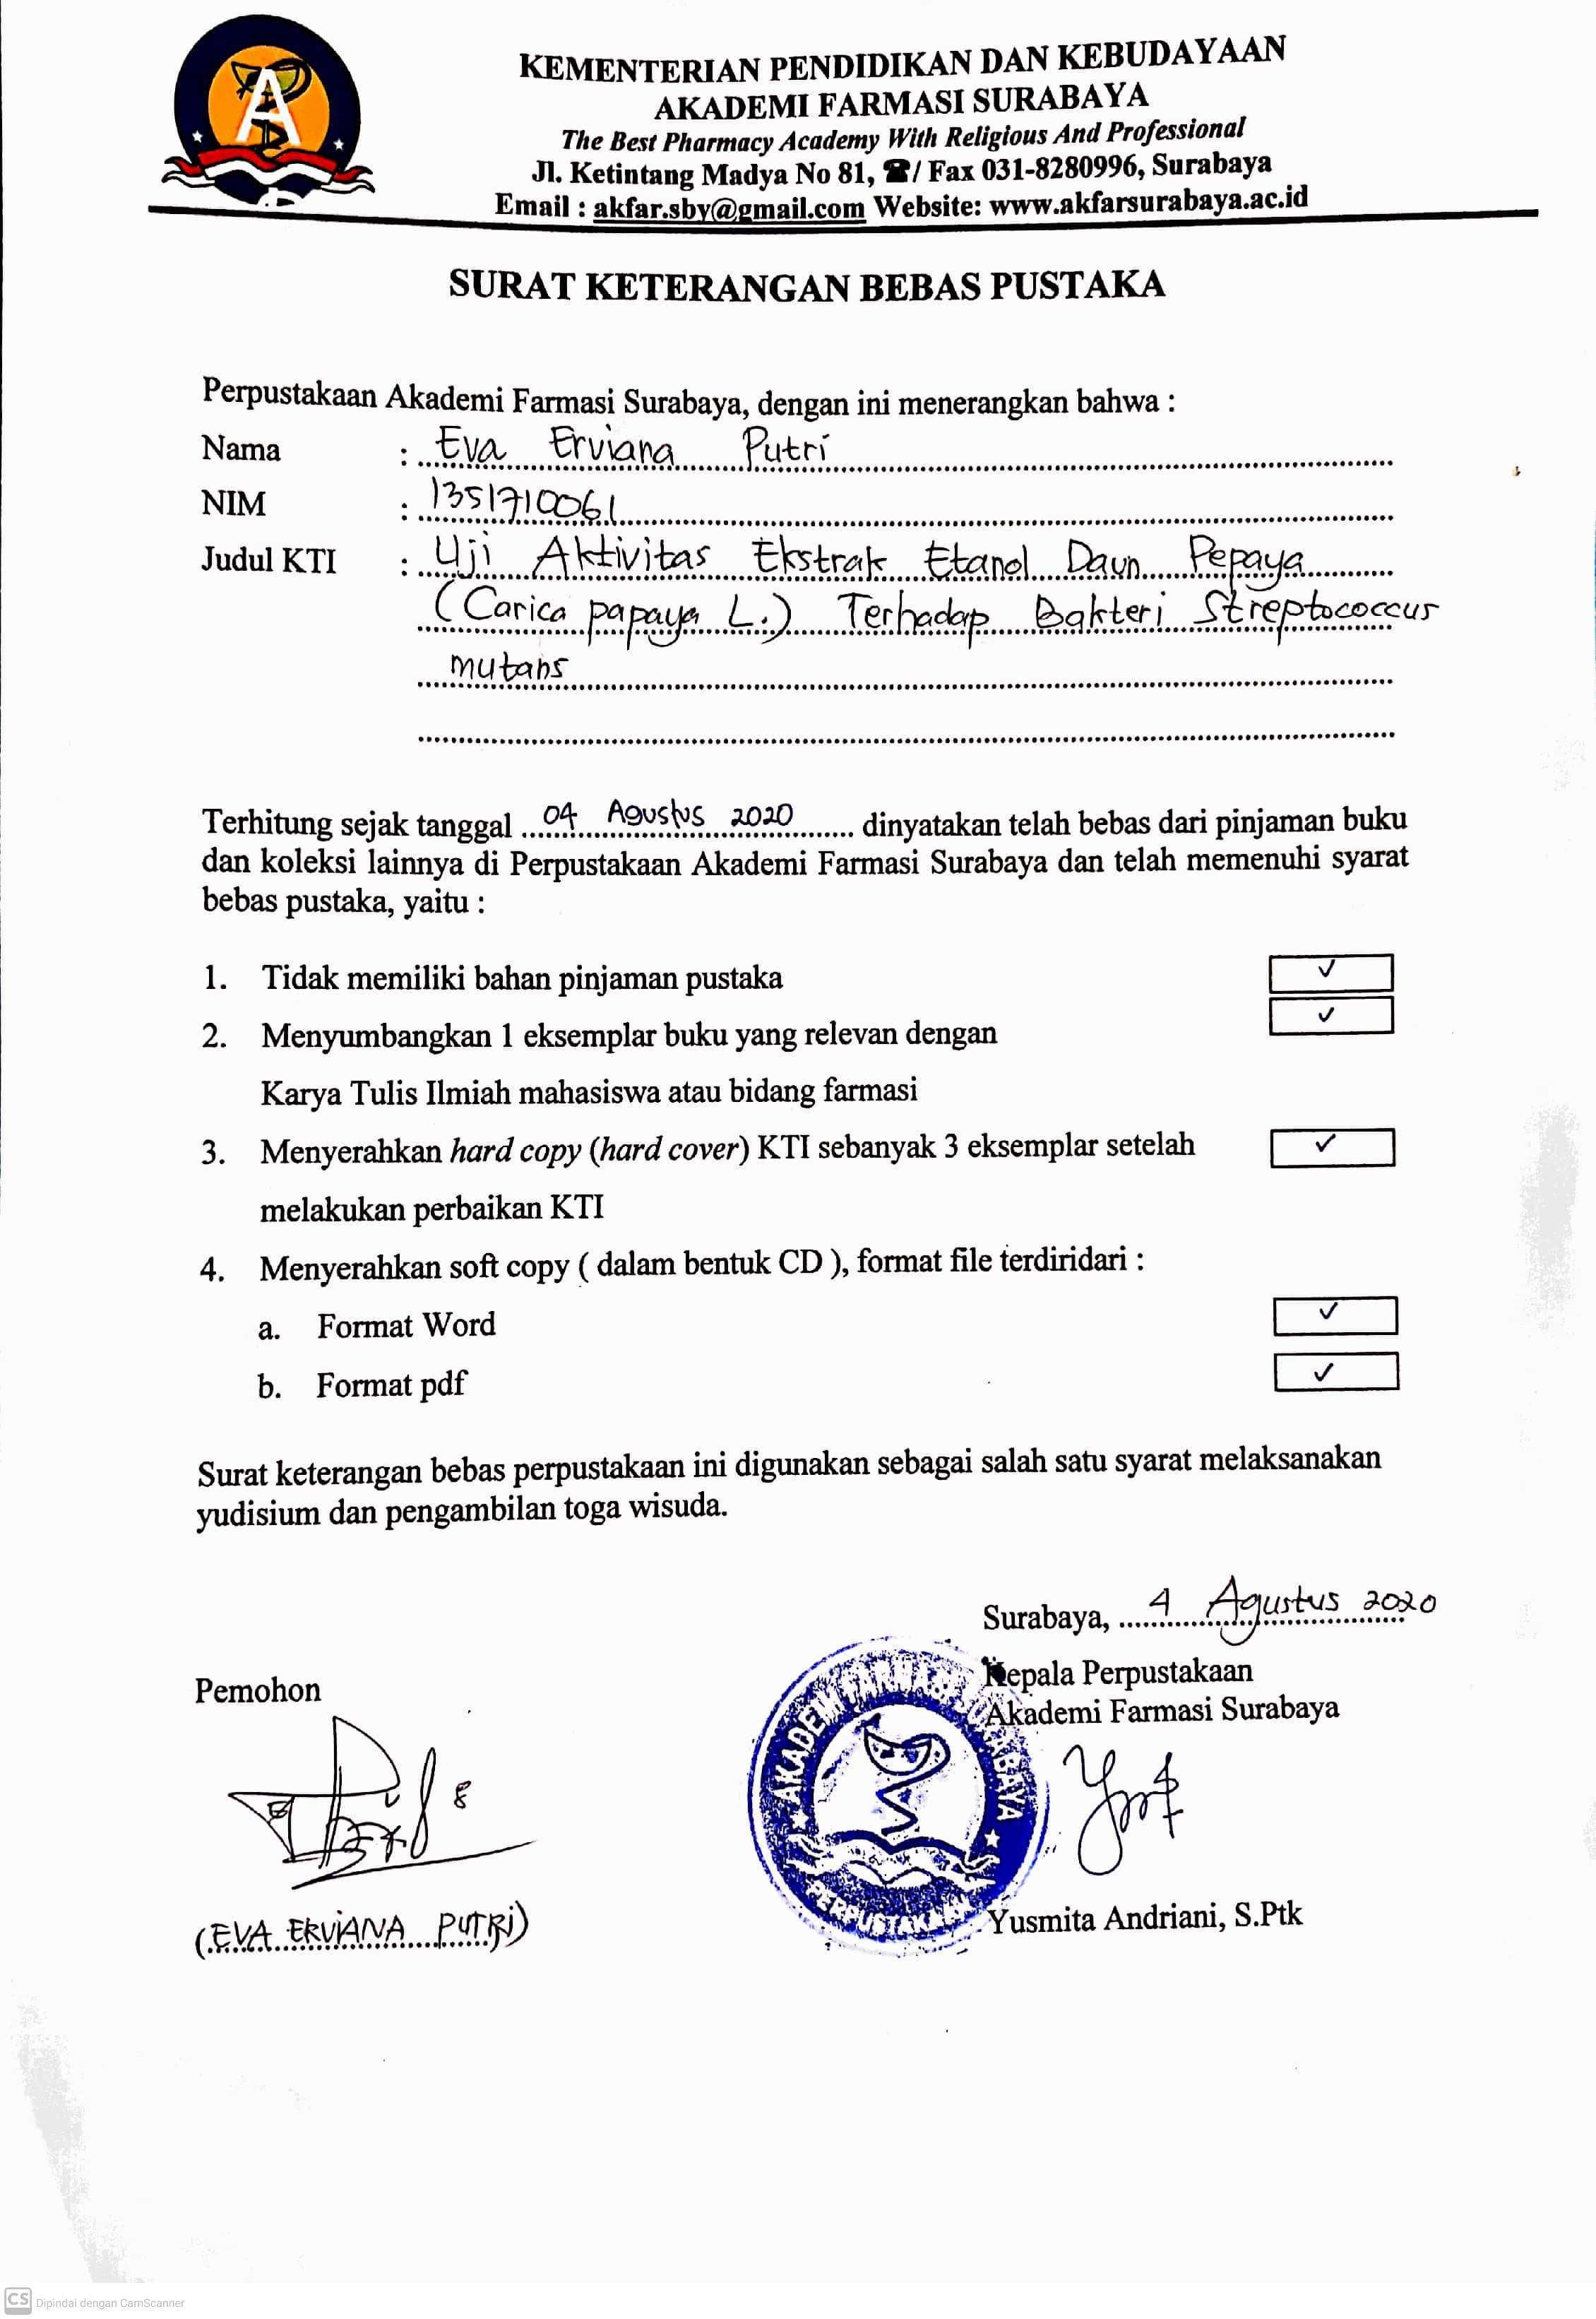 KEMENTERIAN PENDIDIKAN DAN KEBUDAYAAN
AKADEMI FARMASI SURABAYA
The Best Pharmacy Academy With Religious And Professional
Jl. Ketintang Madya No 81, ☎/ Fax 031-8280996, Surabaya
Email : akfar.sby@gmail.com Website: www.akfarsurabaya.ac.id
SURAT KETERANGAN BEBAS PUSTAKA
Perpustakaan Akademi Farmasi Surabaya, dengan ini menerangkan bahwa :
Nama : Eva Erviana Putri
NIM : 1351710061
Judul KTI : Uji Aktivitas Ekstrak Etanol Daun Pepaya
(Carica papaya L.) Terhadap Bakteri Streptococcus
mutans
Terhitung sejak tanggal 04 Agustus 2020 dinyatakan telah bebas dari pinjaman buku
dan koleksi lainnya di Perpustakaan Akademi Farmasi Surabaya dan telah memenuhi syarat
bebas pustaka, yaitu :
1. Tidak memiliki bahan pinjaman pustaka ✓
2. Menyumbangkan 1 eksemplar buku yang relevan dengan ✓
Karya Tulis Ilmiah mahasiswa atau bidang farmasi
3. Menyerahkan hard copy (hard cover) KTI sebanyak 3 eksemplar setelah ✓
melakukan perbaikan KTI
4. Menyerahkan soft copy ( dalam bentuk CD ), format file terdiridari :
a. Format Word ✓
b. Format pdf ✓
Surat keterangan bebas perpustakaan ini digunakan sebagai salah satu syarat melaksanakan
yudisium dan pengambilan toga wisuda.
Surabaya, 4 Agustus 2020
Pemohon
Kepala Perpustakaan
Akademi Farmasi Surabaya
(EVA ERVIANA PUTRI)
Yusmita Andriani, S.Ptk
CS Dipindai dengan CamScanner